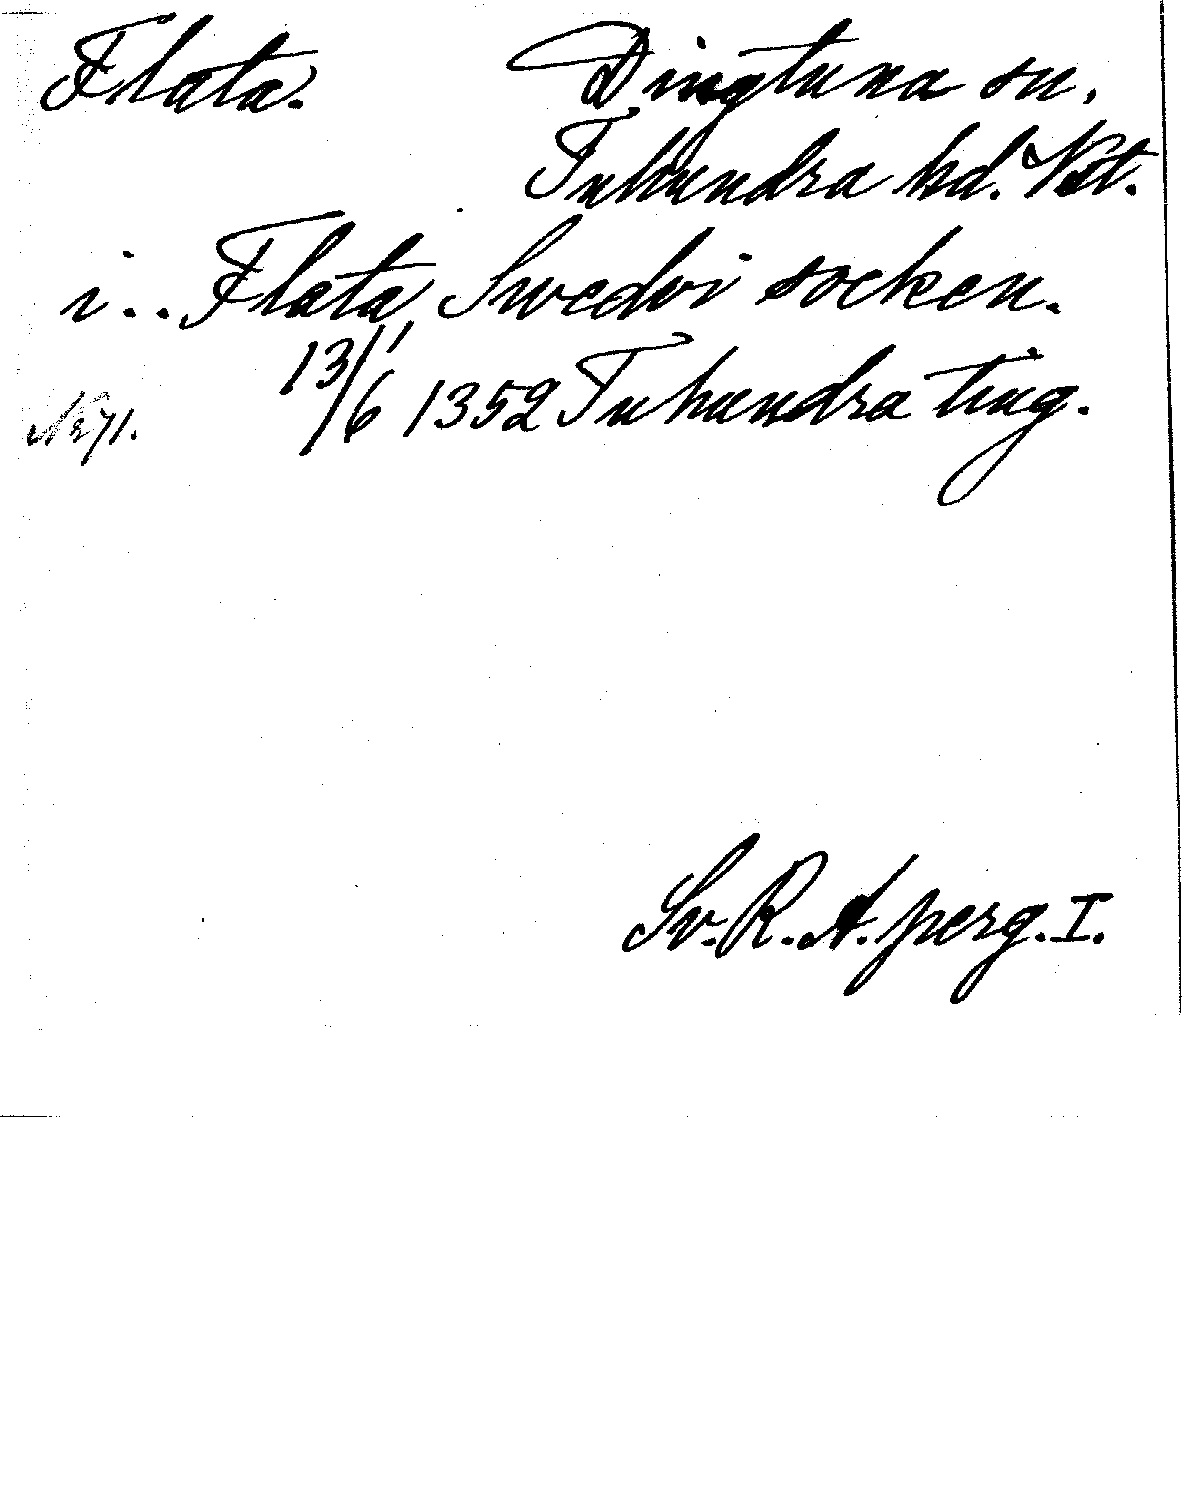 Flata. Dingtuna sn.
Tuhundra hd. Vstt.
i.. Flata, Swedvi socken.
13/6 1352 Tuhundra ting.
№ 71.
Sv. R. A. perg. I.